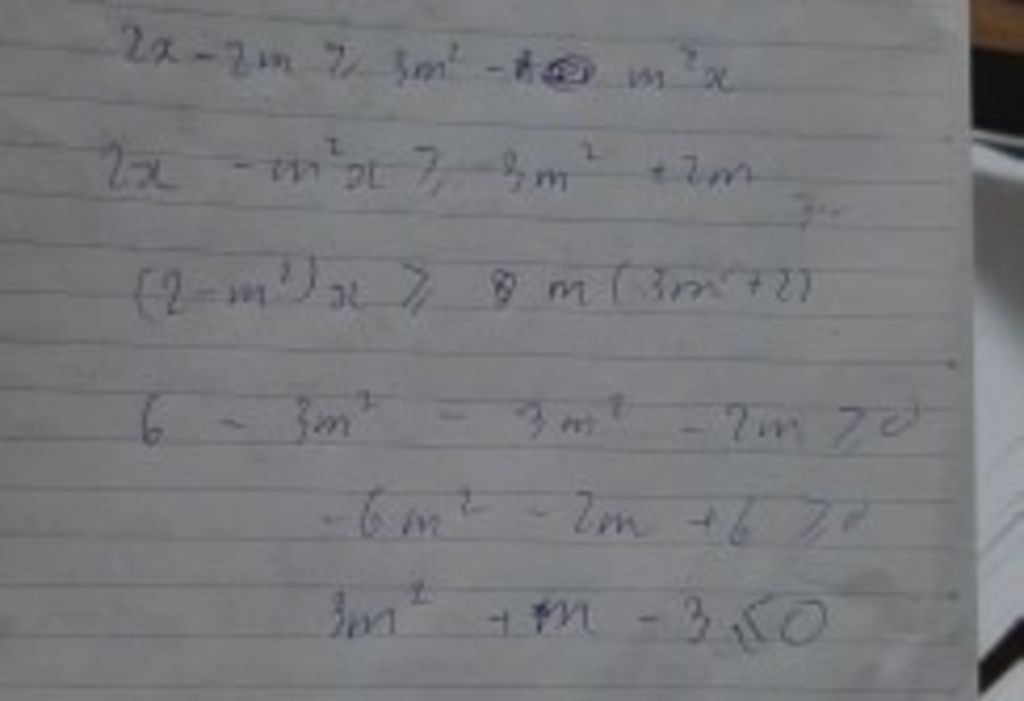 2x - 2m ⩾ 3m² - m²x
2x - m²x ⩾ 3m² + 2m
(2 - m²)x ⩾ m(3m + 2)
6 - 3m² - 3m² - 2m ⩾ 0
-6m² - 2m + 6 ⩾ 0
3m² + m - 3 ⩽ 0